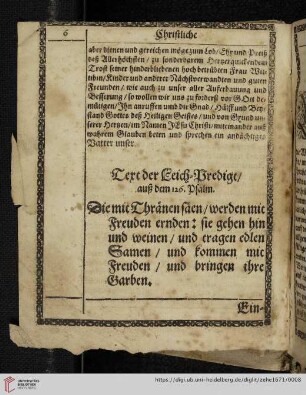 6 Christliche
aber dienen und gereichen möge zum Lob / Ehr und Preiß
deß Allerhöchsten / zu sonderbarem Hertzerquickendem
Trost seiner hinderbliebenen hoch betrübten Frau Wit-
tibin / Kinder und anderer Nächstverwandten und guten
Freunden / wie auch zu unser aller Aufferbauung und
Besserung / so wollen wir uns zu forderst vor GOtt de-
mütigen / Ihn anruffen umb die Gnad / Hülff und Bey-
stand Gottes deß Heiligen Geistes / und von Grund un-
serer Hertzen / im Namen JEsu Christi / miteinander auß
wahrem Glauben beten und sprechen ein andächtiges
Vatter unser.
Text der Leich-Predigt /
auß dem 126. Psalm.
Die mit Thränen säen / werden mit
Freuden ernden: sie gehen hin
und weinen / und tragen edlen
Samen / und kommen mit
Freuden / und bringen ihre
Garben.
Ein-
https://digi.ub.uni-heidelberg.de/diglit/zehe1671/0008